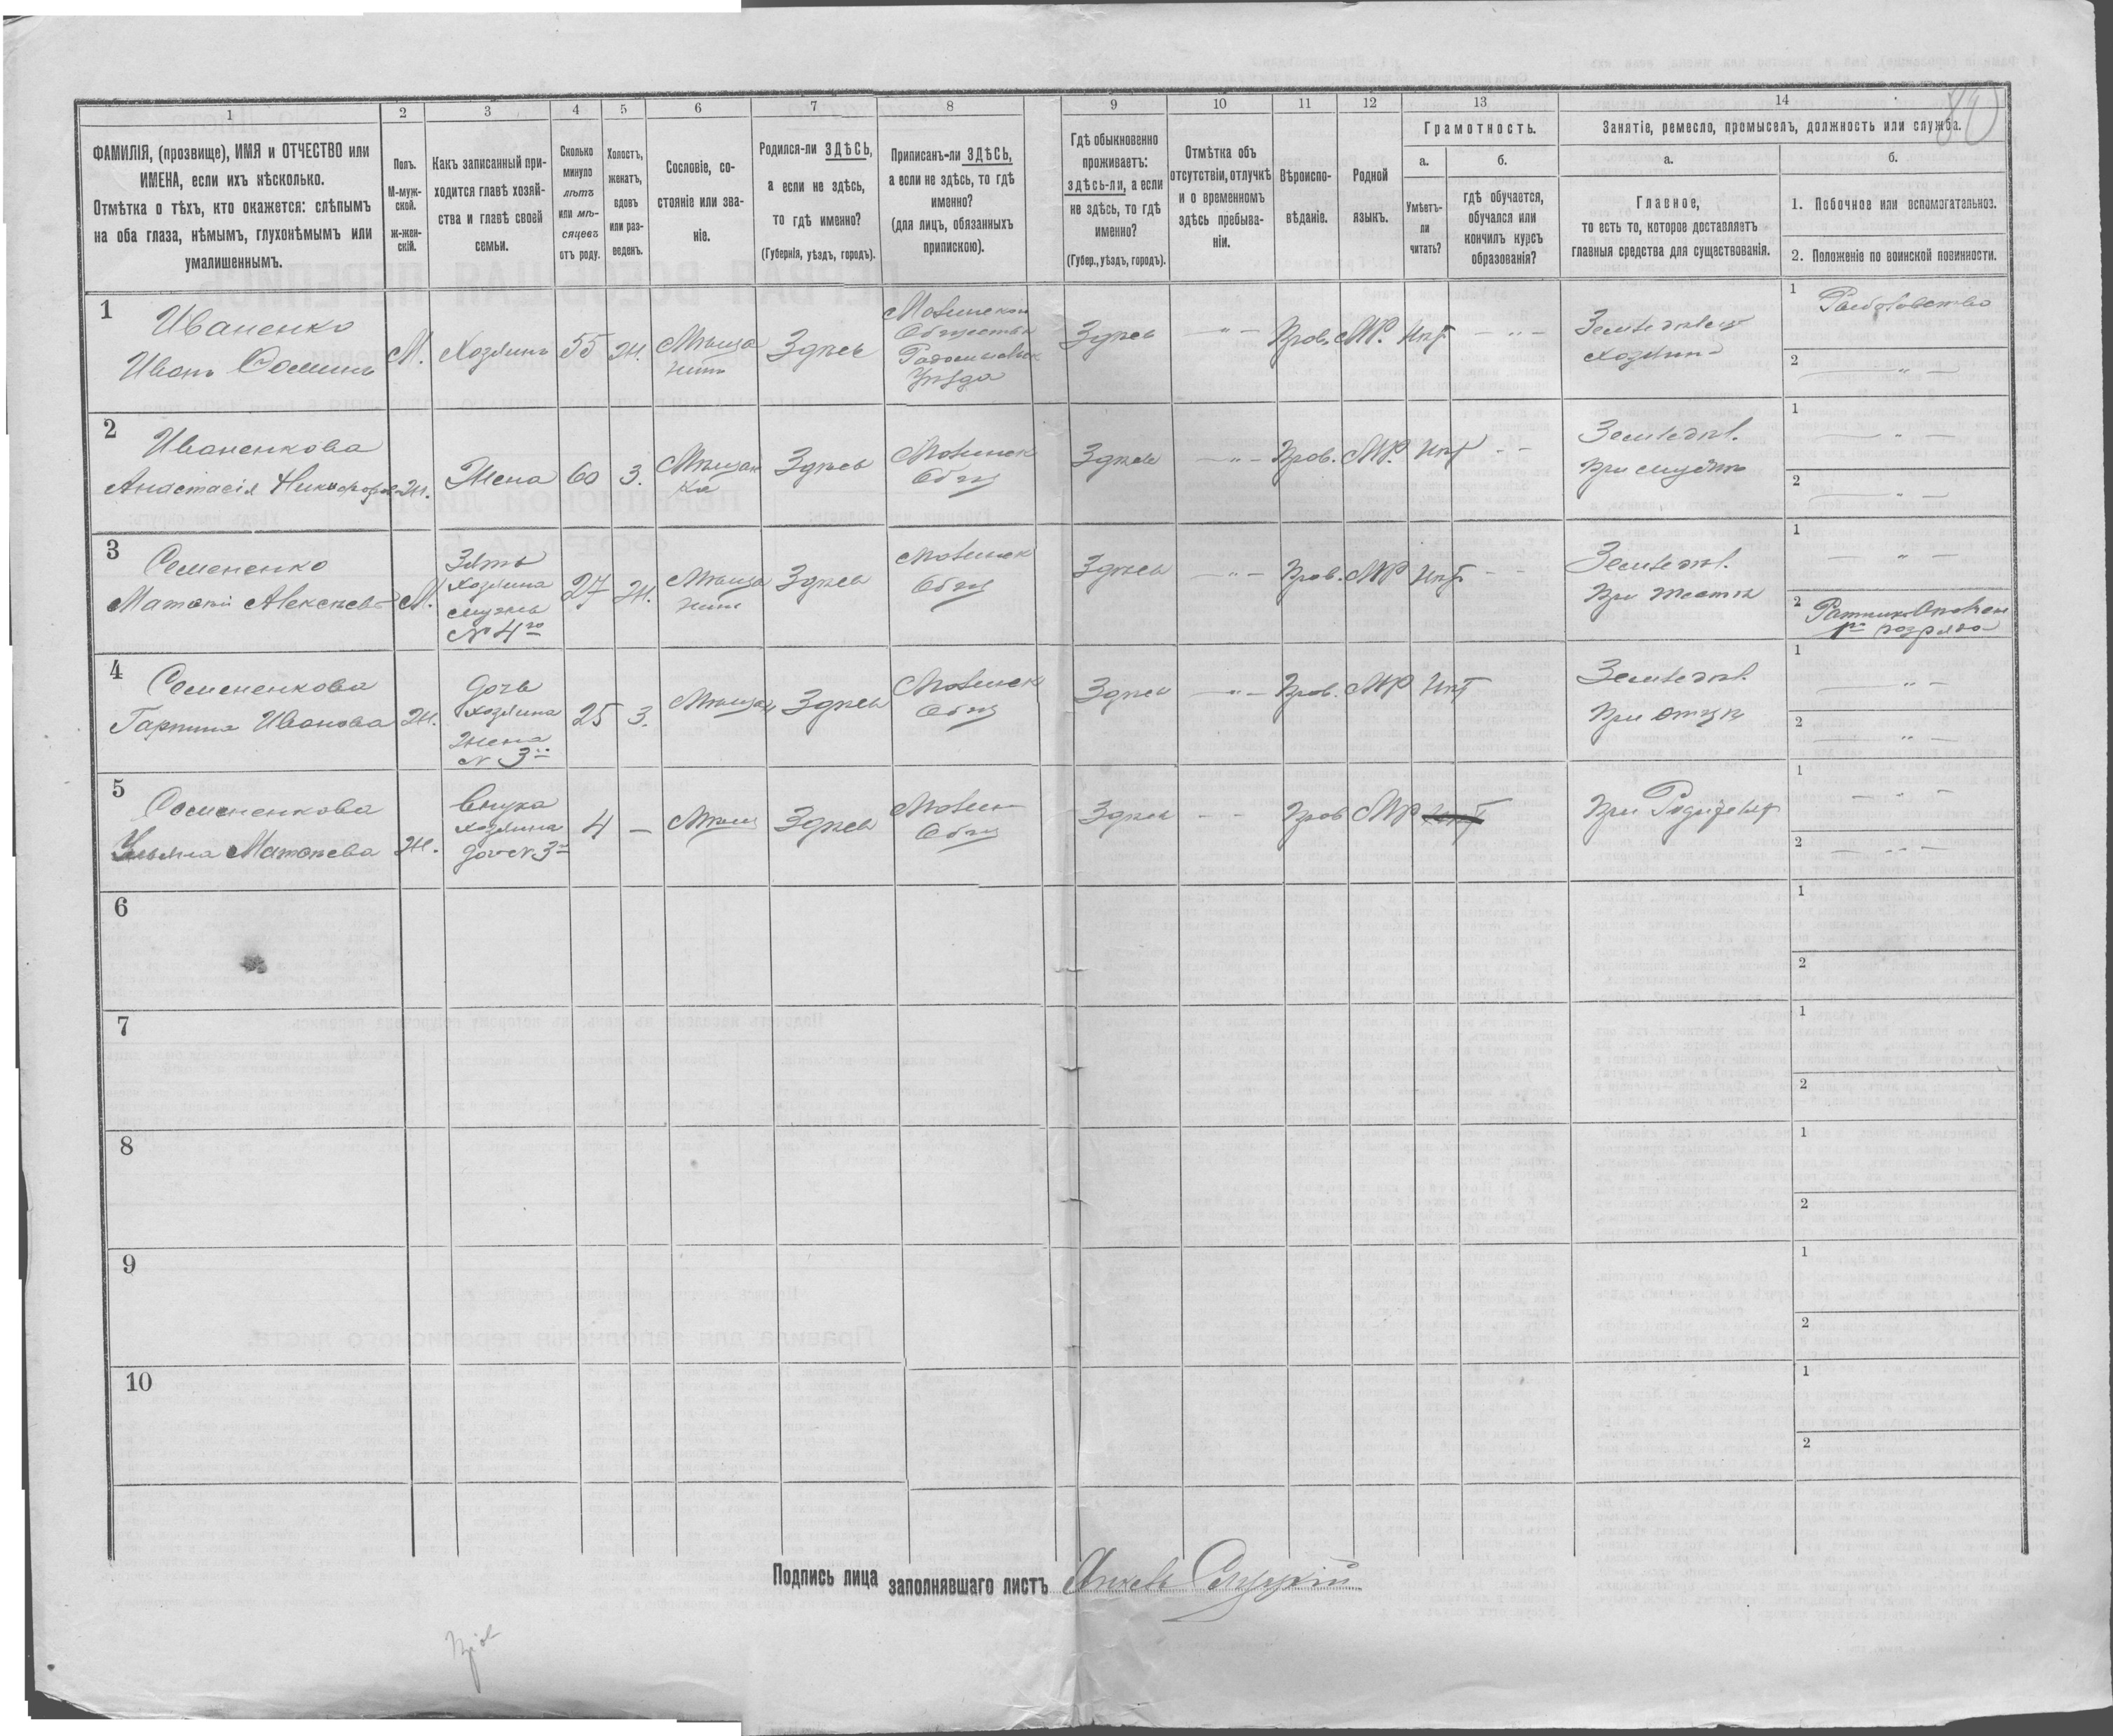 80
1
2
3
4
5
6
7
8
9
10
11
12
13
14
ФАМИЛІЯ, (прозвище), ИМЯ и ОТЧЕСТВО или
ИМЕНА, если ихъ нѣсколько.
Отмѣтка о тѣхъ, кто окажется: слѣпымъ
на оба глаза, нѣмымъ, глухонѣмымъ или
умалишеннымъ.
Полъ.
М-муж-
ской.
Ж-жен-
скій.
Какъ записанный при-
ходится главѣ хозяй-
ства и главѣ своей
семьи.
Сколько
минуло
лѣтъ
или мѣ-
сяцевъ
отъ роду.
Холостъ,
женатъ,
вдовъ
или раз-
веденъ.
Сословіе, со-
стояніе или зва-
ніе.
Родился-ли ЗДѢСЬ,
а если не здѣсь,
то гдѣ именно?
(Губернія, уѣздъ, городъ).
Приписанъ-ли ЗДѢСЬ,
а если не здѣсь, то гдѣ
именно?
(для лицъ, обязанныхъ
припискою).
Гдѣ обыкновенно
проживаетъ:
здѣсь-ли, а если
не здѣсь, то гдѣ
именно?
(Губер., уѣздъ, городъ).
Отмѣтка объ
отсутствіи, отлучкѣ
и о временномъ
здѣсь пребыва-
ніи.
Вѣроиспо-
вѣданіе.
Родной
языкъ.
Грамотность.
а.
б.
Умѣетъ-
ли
читать?
гдѣ обучается,
обучался или
кончилъ курсъ
образованія?
Занятіе, ремесло, промыселъ, должность или служба.
а.
б.
Главное,
то есть то, которое доставляетъ
главныя средства для существованія.
1. Побочное или вспомогательное.
2. Положеніе по воинской повинности.
1
Иваненко
Иванъ Фоминъ
М.
Хозяинъ
55
Ж.
Мѣща
нинъ
Здѣсь
Общества
Радомысльск
Уѣзда
Здѣсь
— " —
Прав.
МР.
Нѣт
— " —
Земледѣлец
хозяинъ
1
Рыболовство
2
— " —
2
Иваненкова
Анастасія Никифоров
Ж.
Жена
60
З.
Мѣщан
ка
Здѣсь
Общ
Здѣсь
— " —
Прав.
МР.
Нѣт
- -
Земледѣл.
При мужѣ
1
— " —
2
— " —
3
Семененко
Матвѣй Алексѣев
М.
Зять
хозяина
мужъ
№ 4го
27
Ж.
Мѣща
нинъ
Здѣсь
Общ
Здѣсь
— " —
Прав.
МР
Нѣт
- -
Земледѣл.
При тестѣ
1
— " —
2
Ратник Ополчен
1го разряда
4
Семененкова
Гарпина Иванова
Ж.
дочь
хозяина
жена
№ 3го
25
З.
Мѣщан
Здѣсь
Общ
Здѣсь
— " —
Прав.
МР
Нѣт
Земледѣл.
При отцѣ
1
— " —
2
— " —
5
Семененкова
Ульяна Матвѣева
Ж.
Внука
хозяина
доч № 3го
4
—
Мѣщ
Здѣсь
Общ
Здѣсь
- -
Прав
МР
Нѣт
При Родител
1
— " —
2
— " —
6
1
2
7
1
2
8
1
2
9
1
2
10
1
2
Подпись лица заполнявшаго листъ